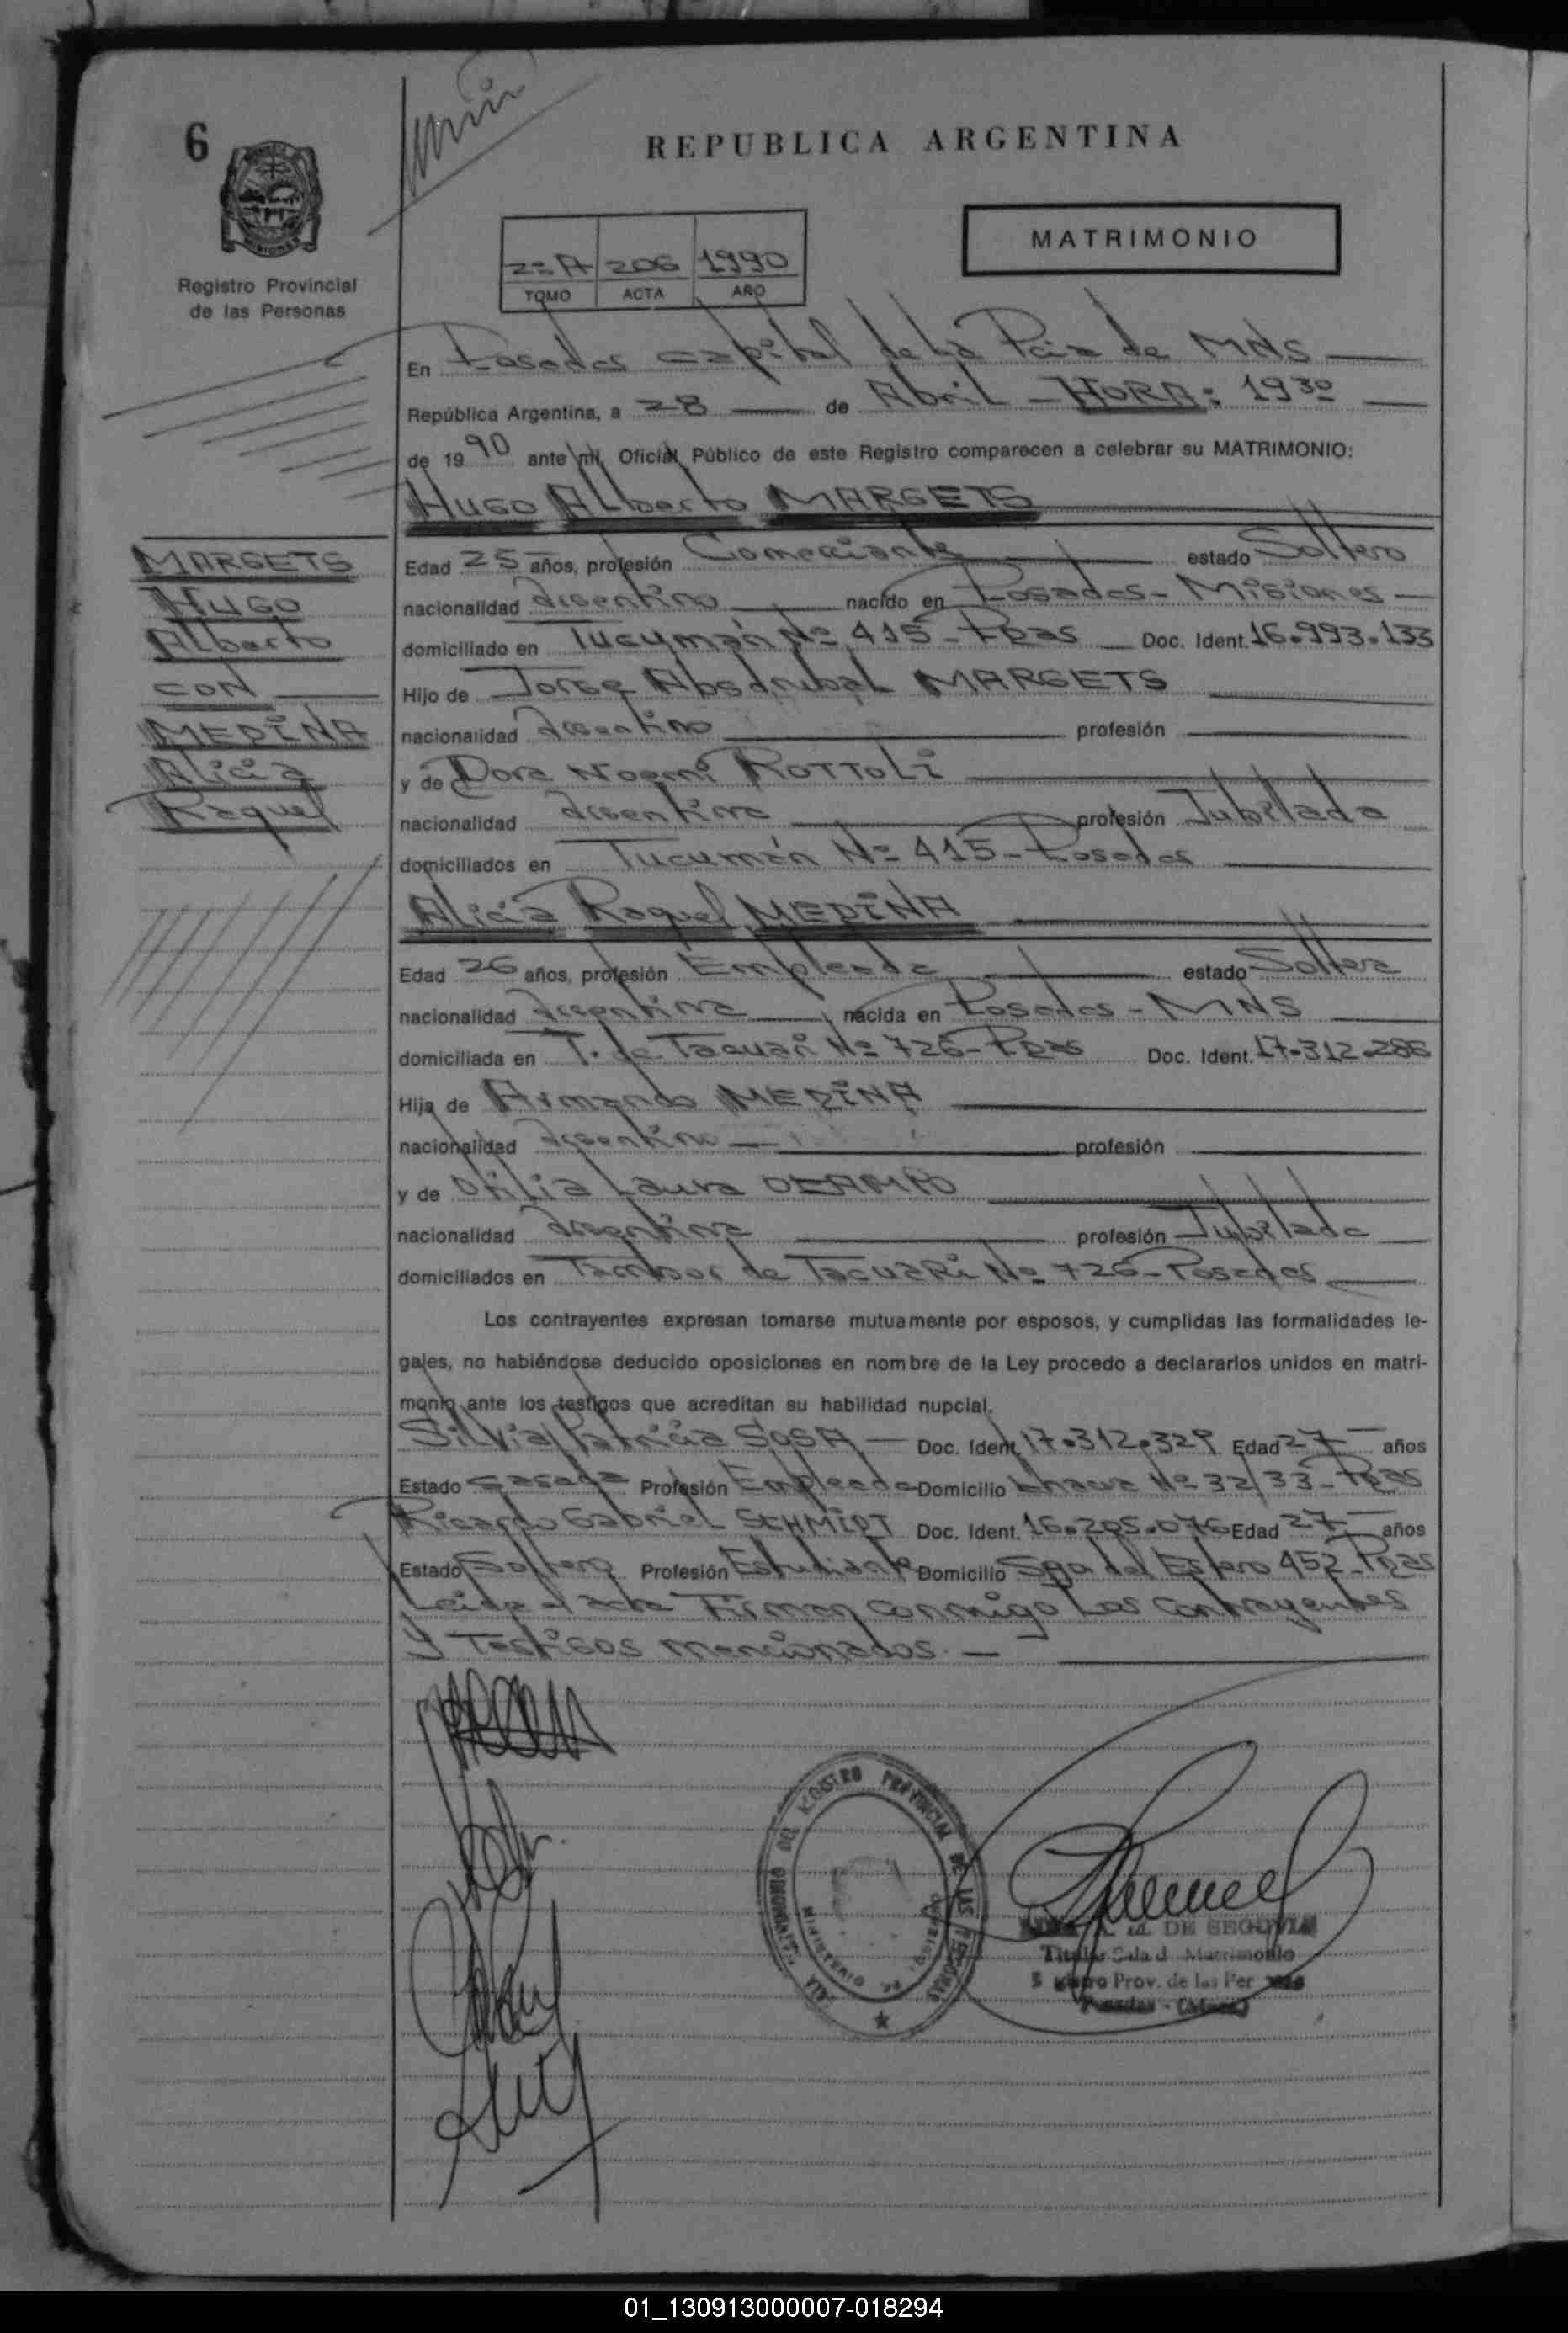 6
REPUBLICA ARGENTINA
MATRIMONIO
Registro Provincial
de las Personas
2º A 206 1990
TOMO ACTA AÑO
En Posadas capital de la Pcia de MNS
República Argentina, a 28 de Abril - HORA: 19³⁰
de 1990 ante mí, Oficial Público de este Registro comparecen a celebrar su MATRIMONIO:
HUGO Alberto MARGETS
MARGETS
HUGO
Alberto
CON
MEDINA
Alicia
Raquel
Edad 25 años, profesión Comerciante estado Soltero
nacionalidad argentino nacido en Posadas - Misiones
domiciliado en Tucumán Nº 415 - Pdas Doc. Ident. 16.993.133
Hijo de Jorge Absdrubal MARGETS
nacionalidad argentino profesión
y de Dora Noemi ROTTOLI
nacionalidad argentina profesión Jubilada
domiciliados en Tucumán Nº 415 - Posadas
Alicia Raquel MEDINA
Edad 26 años, profesión Empleada estado Soltera
nacionalidad argentina nacida en Posadas - MNS
domiciliada en T. de Tacuari Nº 726 - Pdas Doc. Ident. 17.312.286
Hija de Armando MEDINA
nacionalidad argentino profesión
y de Otilia Laura OCAMPO
nacionalidad argentina profesión Jubilada
domiciliados en Tambor de Tacuari Nº 726 - Posadas
Los contrayentes expresan tomarse mutuamente por esposos, y cumplidas las formalidades le-
gales, no habiéndose deducido oposiciones en nombre de la Ley procedo a declararlos unidos en matri-
monio ante los testigos que acreditan su habilidad nupcial.
Silvia Patricia SOSA Doc. Ident. 17.312.329 Edad 27 años
Estado casada Profesión Empleada Domicilio Nº 32/33 - Pdas
Ricardo Gabriel SCHMIDT Doc. Ident. 16.205.076 Edad 27 años
Estado Soltero Profesión Estudiante Domicilio Sgo del Estero 452 - Pdas
Leida el acta Firman conmigo Los Contrayentes
y Testigos mencionados.
REGISTRO PROVINCIAL DE LAS PERSONAS
MINISTERIO DE GOBIERNO
M. DE SEGOVIA
Titular Sala d Matrimonio
Prov. de las Per
Posadas
01_130913000007-018294